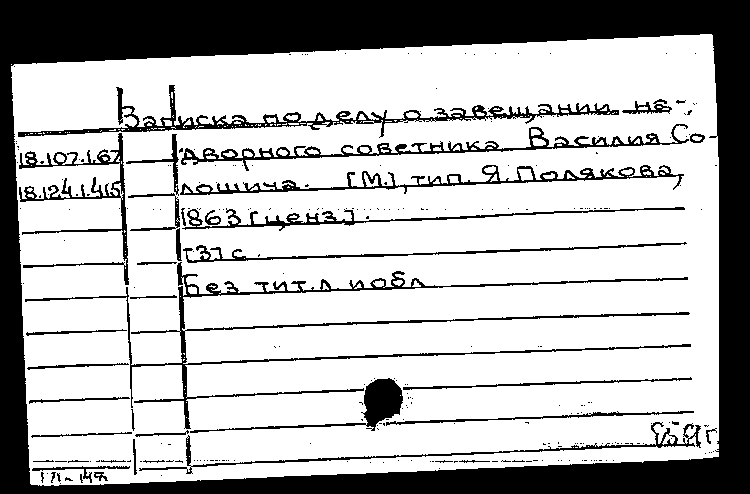 Записка по делу о завещании на-
18.107.1.67 дворного советника Василия Со-
18.124.1.415 лошича. [М.], тип. Я. Полякова,
1863 [ценз].
[3] с.
Без тит. л и обл